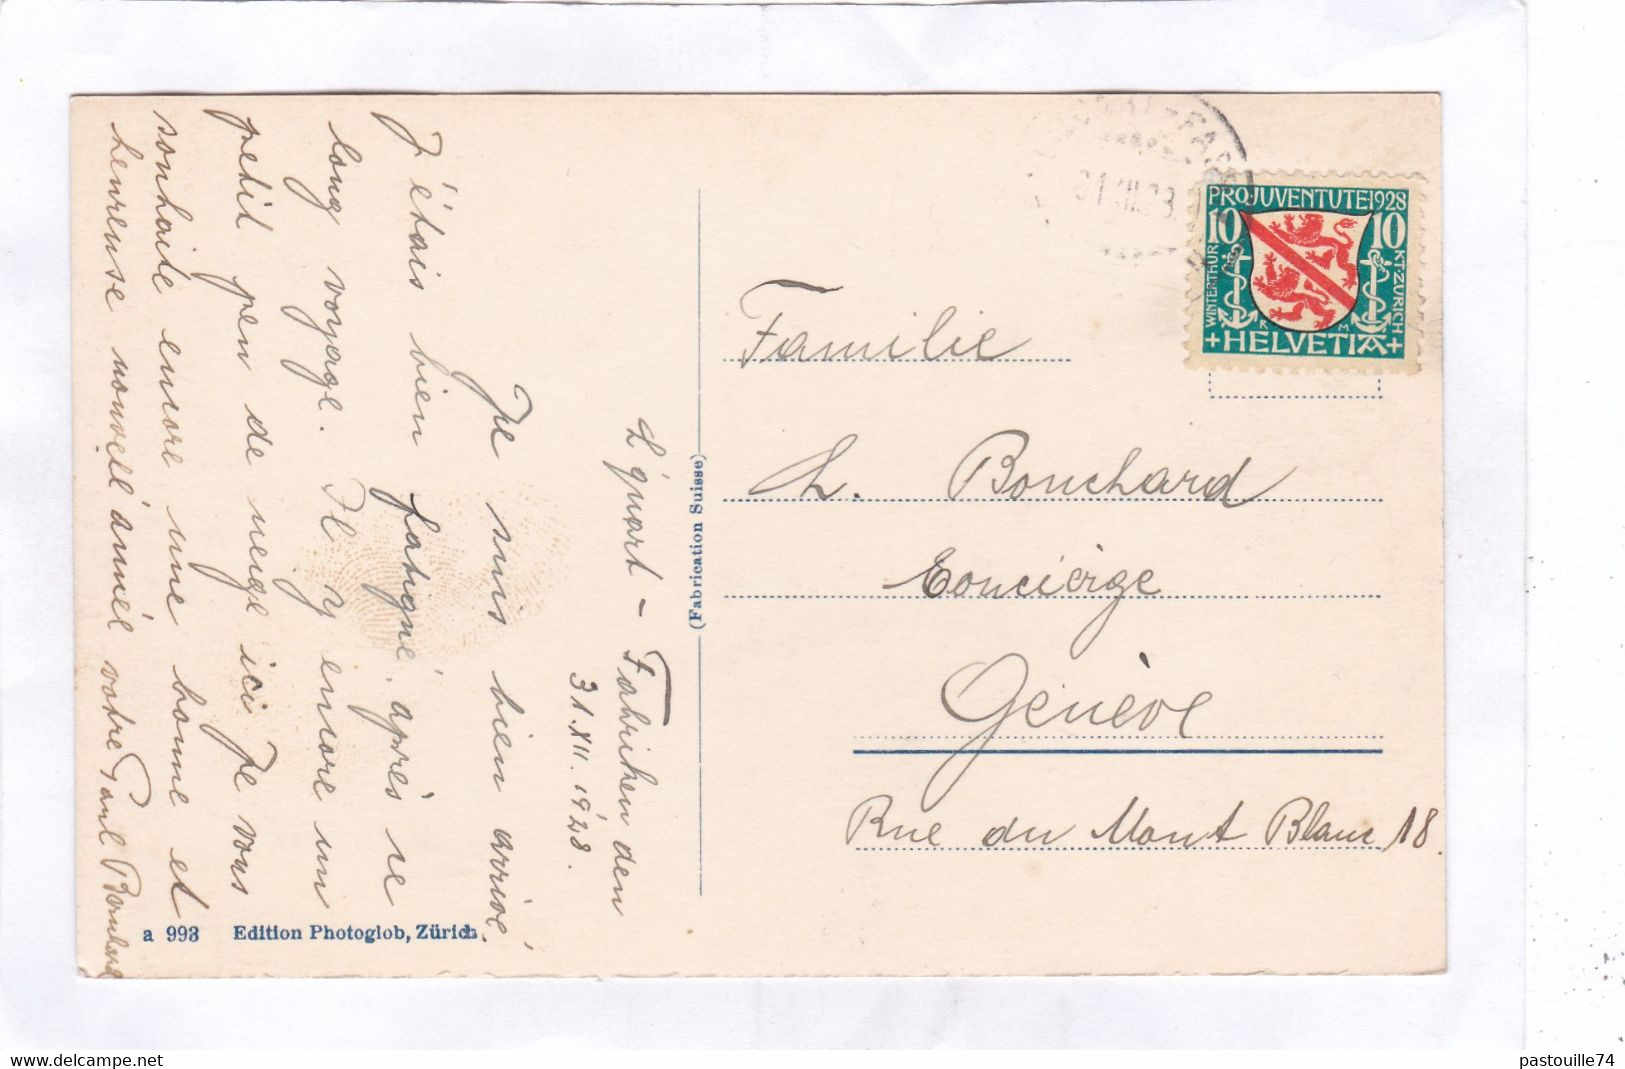 L'quart - Fabriken den
31.XII.1928.
Je suis bien arrivé,
J'étais bien fatigué, après se
long voyage. Il y encore un
petit peu de neige ici Je vous
sonhaite encore une bonne et
heureuse nouvell'année votre Paul Bernhard
a 993 Edition Photoglob, Zürich
(Fabrication Suisse)
31.XII.28.
PRO JUVENTUTE 1928
10 10
WINTERTHUR
KT. ZÜRICH
R M
+HELVETIA+
Familie
Ch. Bouchard
Conciérge
Genève
Rue du Mont Blanc 18.
pastouille74